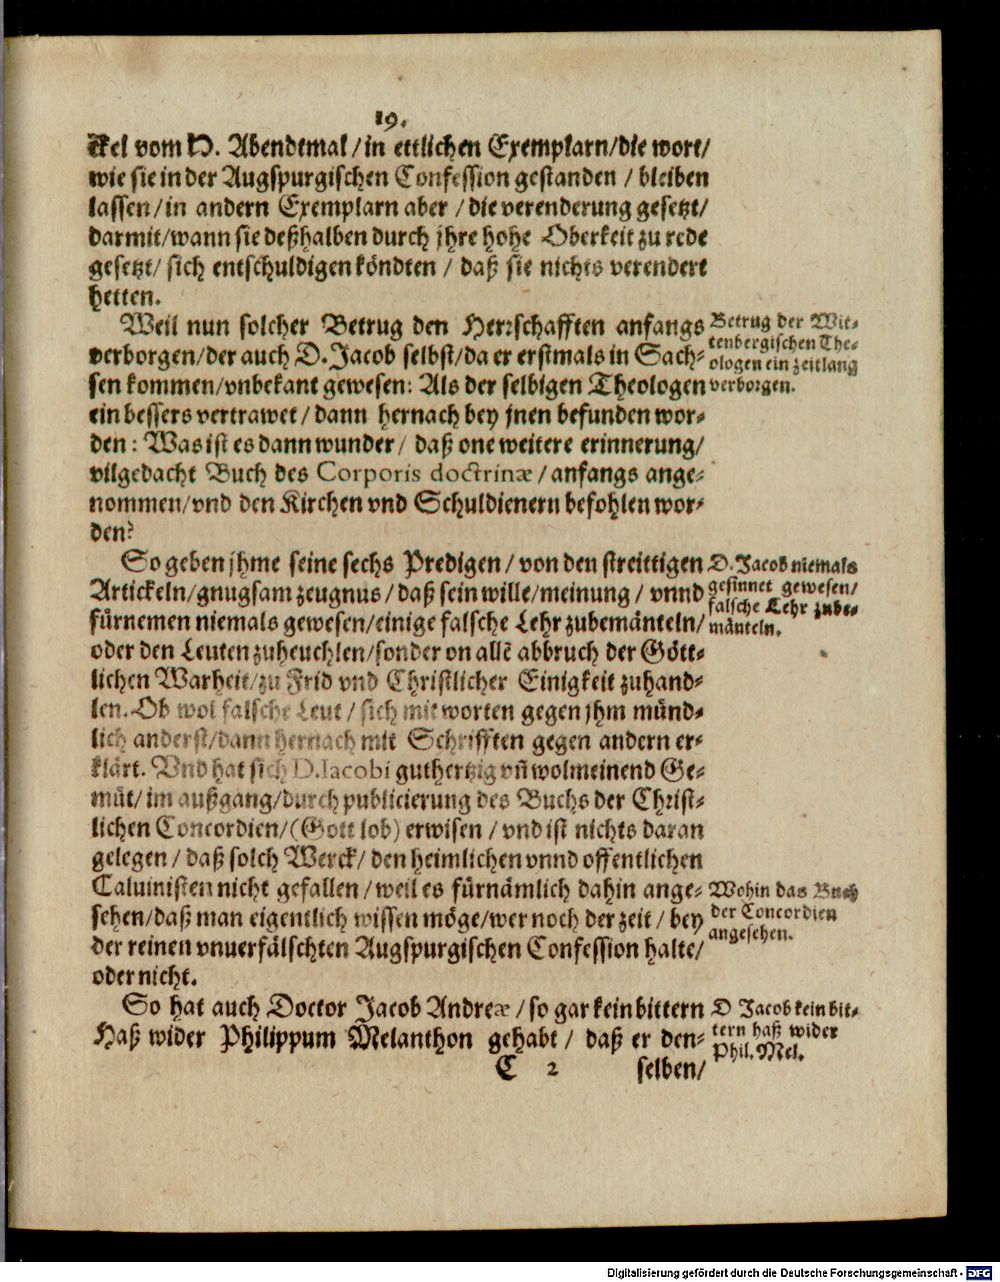 19.
ckel vom H. Abendtmal / in ettlichen Exemplarn / die wort /
wie sie in der Augspurgischen Confession gestanden / bleiben
lassen / in andern Exemplarn aber / die verenderung gesetzt /
darmit / wann sie deßhalben durch jhre hohe Oberkeit zu rede
gesetzt / sich entschuldigen köndten / daß sie nichts verendert
hetten.
Weil nun solcher Betrug den Herrschafften anfangs
verborgen / der auch D. Jacob selbst / da er erstmals in Sach-
sen kommen / vnbekant gewesen: Als der selbigen Theologen
ein bessers vertrawet / dann hernach bey jnen befunden wor-
den: Was ist es dann wunder / daß one weitere erinnerung /
vilgedacht Buch des Corporis doctrinæ / anfangs ange-
nommen / vnd den Kirchen vnd Schuldienern befohlen wor-
den?
Betrug der Wit-
tenbergischen The-
ologen ein zeitlang
verborgen.
So geben jhme seine sechs Predigen / von den streittigen
Artickeln / gnugsam zeugnus / daß sein wille / meinung / vnnd
fürnemen niemals gewesen / einige falsche Lehr zubemänteln /
oder den Leuten zuheuchlen / sonder on allē abbruch der Gött-
lichen Warheit / zu Frid vnd Christlicher Einigkeit zuhand-
len. Ob wol falsche Leut / sich mit worten gegen jhm münd-
lich anderst / dann hernach mit Schrifften gegen andern er-
klärt. Vnd hat sich D. Iacobi guthertzig vn̄ wolmeinend Ge-
müt / im außgang / durch publicierung des Buchs der Christ-
lichen Concordien / (Gott lob) erwisen / vnd ist nichts daran
gelegen / daß solch Werck / den heimlichen vnnd offentlichen
Caluinisten nicht gefallen / weil es fürnämlich dahin ange-
sehen / daß man eigentlich wissen möge / wer noch der zeit / bey
der reinen vnuerfälschten Augspurgischen Confession halte /
oder nicht.
D. Jacob niemals
gesinnet gewesen /
falsche Lehr zube-
mänteln.
Wohin das Buch
der Concordien
angesehen.
So hat auch Doctor Jacob Andreæ / so gar kein bittern
Haß wider Philippum Melanthon gehabt / daß er den-
D Jacob kein bit-
tern haß wider
Phil. Mel.
C 2 selben /
Digitalisierung gefördert durch die Deutsche Forschungsgemeinschaft - DFG